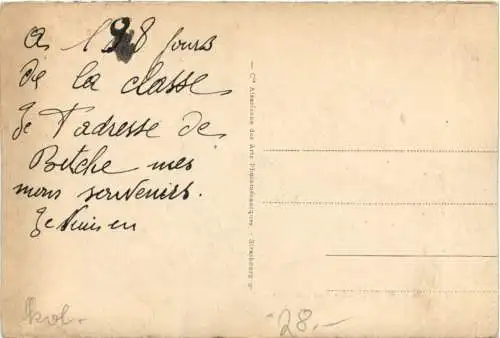 a 198 jours
de la classe
Je t'adresse de
Bitche mes
mons souvenirs.
Cie Alsacienne des Arts Photomécaniques. - Strasbourg
28.-